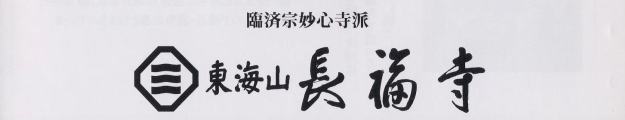 臨済宗妙心寺派
東海山 長福寺